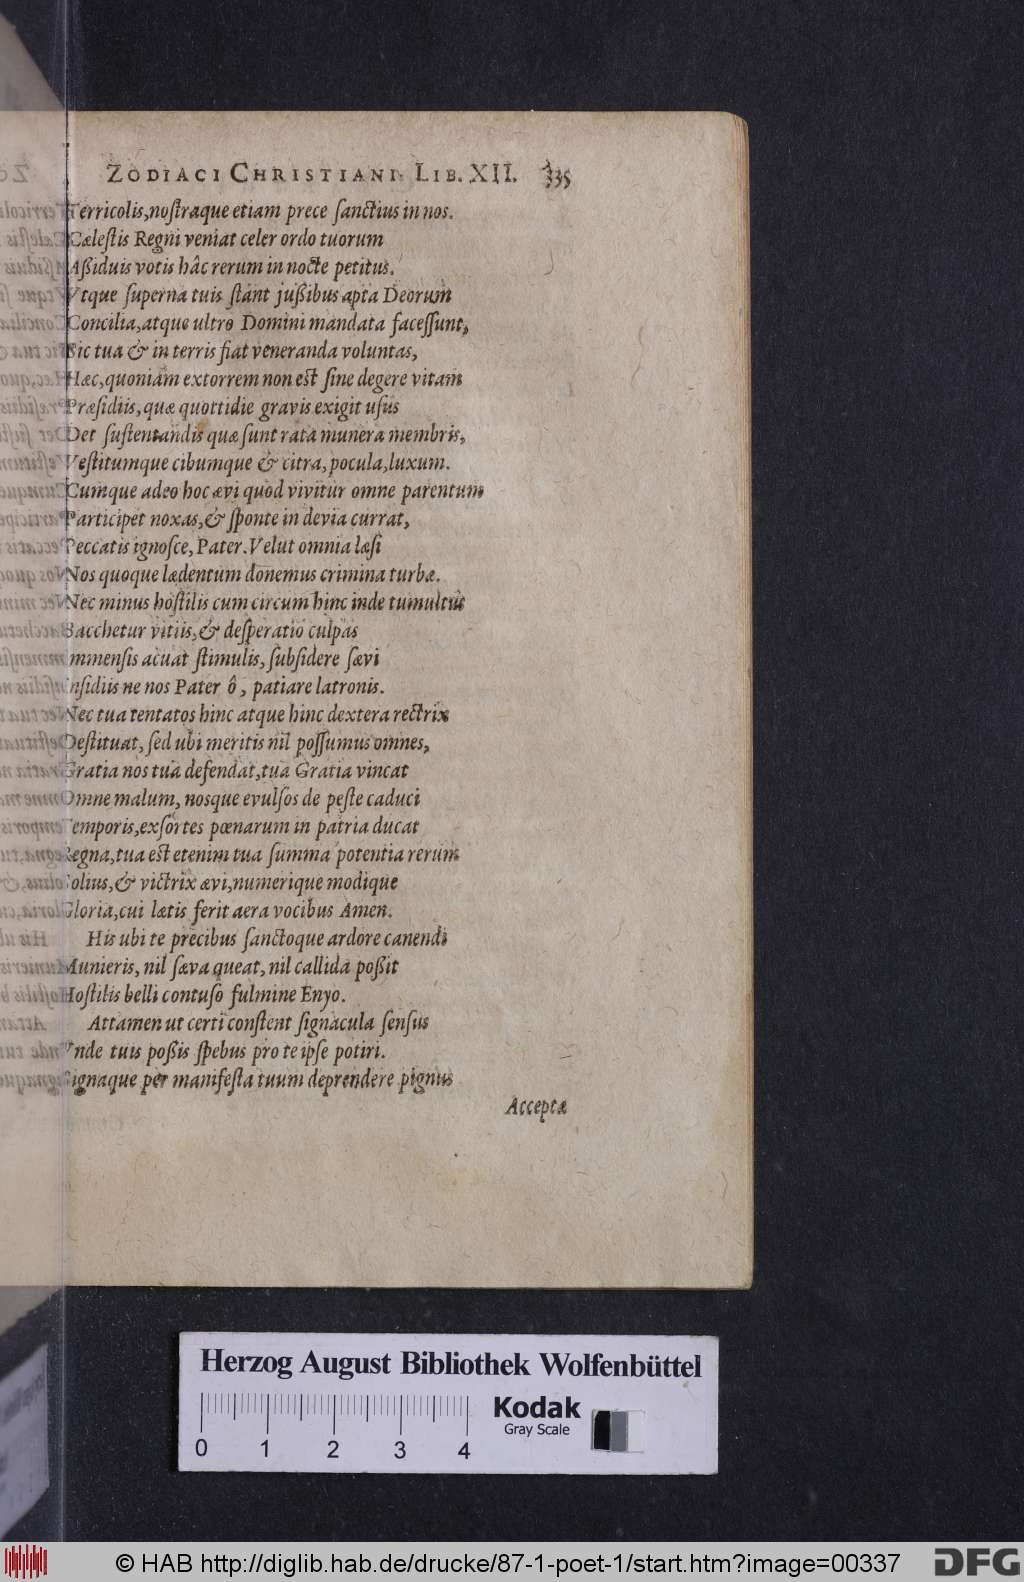 ZODIACI CHRISTIANI. LIB. XII. 335
Terricolis,nostraque etiam prece sanctius in nos.
Cælestis Regni veniat celer ordo tuorum
Aßiduis votis hâc rerum in nocte petitus.
Vtque superna tuis stant jußibus apta Deorum
Concilia,atque ultro Domini mandata facessunt,
Sic tua & in terris fiat veneranda voluntas,
Hæc,quoniam extorrem non est sine degere vitam
Præsidiis,quæ quottidie gravis exigit usus
Det sustentandis quæ sunt rata munera membris,
Vestitumque cibumque & citra,pocula,luxum.
Cumque adeo hoc ævi quod vivitur omne parentum
Participet noxas,& sponte in devia currat,
Peccatis ignosce,Pater.Velut omnia læsi
Nos quoque lædentum donemus crimina turbæ.
Nec minus hostilis cum circum hinc inde tumultus
Bacchetur vitiis,& desperatio culpas
Immensis acuat stimulis,subsidere sævi
Insidiis ne nos Pater ô, patiare latronis.
Nec tua tentatos hinc atque hinc dextera rectrix
Destituat,sed ubi meritis nil possumus omnes,
Gratia nos tua defendat,tua Gratia vincat
Omne malum, nosque evulsos de peste caduci
Temporis,exsortes pœnarum in patria ducat
Regna,tua est etenim tua summa potentia rerum
Solius,& victrix ævi,numerique modique
Gloria,cui lætis ferit aera vocibus Amen.
His ubi te precibus sanctoque ardore canendi
Munieris, nil sæva queat,nil callida poßit
Hostilis belli contuso fulmine Enyo.
Attamen ut certi constent signacula sensus
Vnde tuis poßis spebus pro te ipse potiri.
Signaque per manifesta tuum deprendere pignus
Acceptæ
Herzog August Bibliothek Wolfenbüttel
0 1 2 3 4
Kodak
Gray Scale
© HAB http://diglib.hab.de/drucke/87-1-poet-1/start.htm?image=00337
DFG